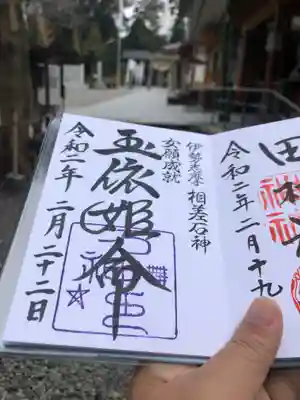 令和二年二月十九
伊勢志摩 相差石神
女願成就
玉依姫命
令和二年 二月二十二日